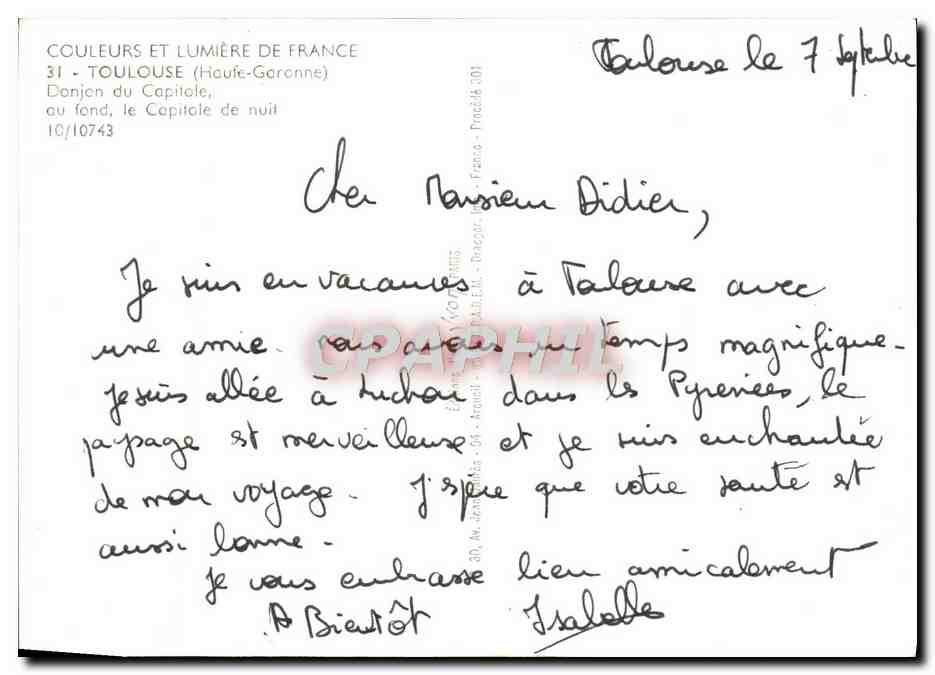 COULEURS ET LUMIÈRE DE FRANCE
31 - TOULOUSE (Haute-Garonne)
Donjon du Capitole,
au fond, le Capitole de nuit
10/10743
Toulouse le 7 Septembre
Cher Monsieur Didier,
Je suis en vacances à Toulouse avec
une amie. nous avons un temps magnifique.
Je suis allée à Luchon dans les Pyrenées, le
paysage est merveilleuse et je suis enchantée
de mon voyage. J'espère que votre santé est
aussi bonne.
Je vous embrasse bien amicalement
A Bientôt Isabelle
CPAPHIL
30, Av. Jean - 94 - Arcueil - Draeger, - France - Procédé 301